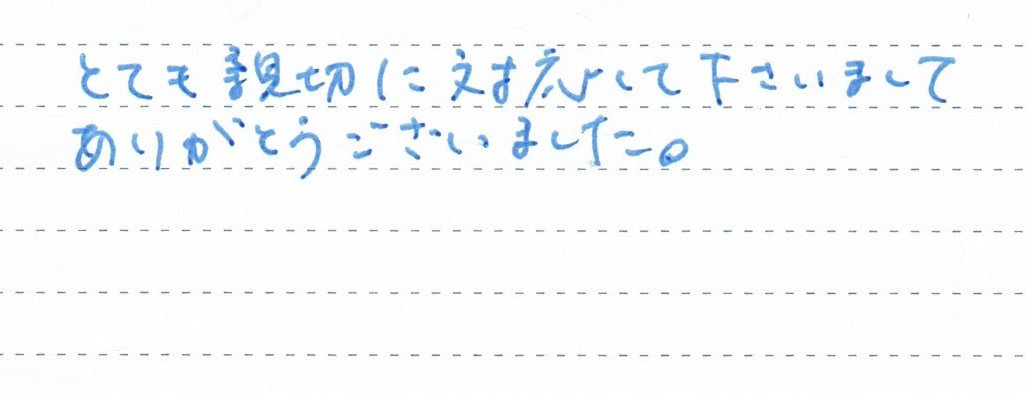 とても親切に対応して下さいまして
ありがとうございました。